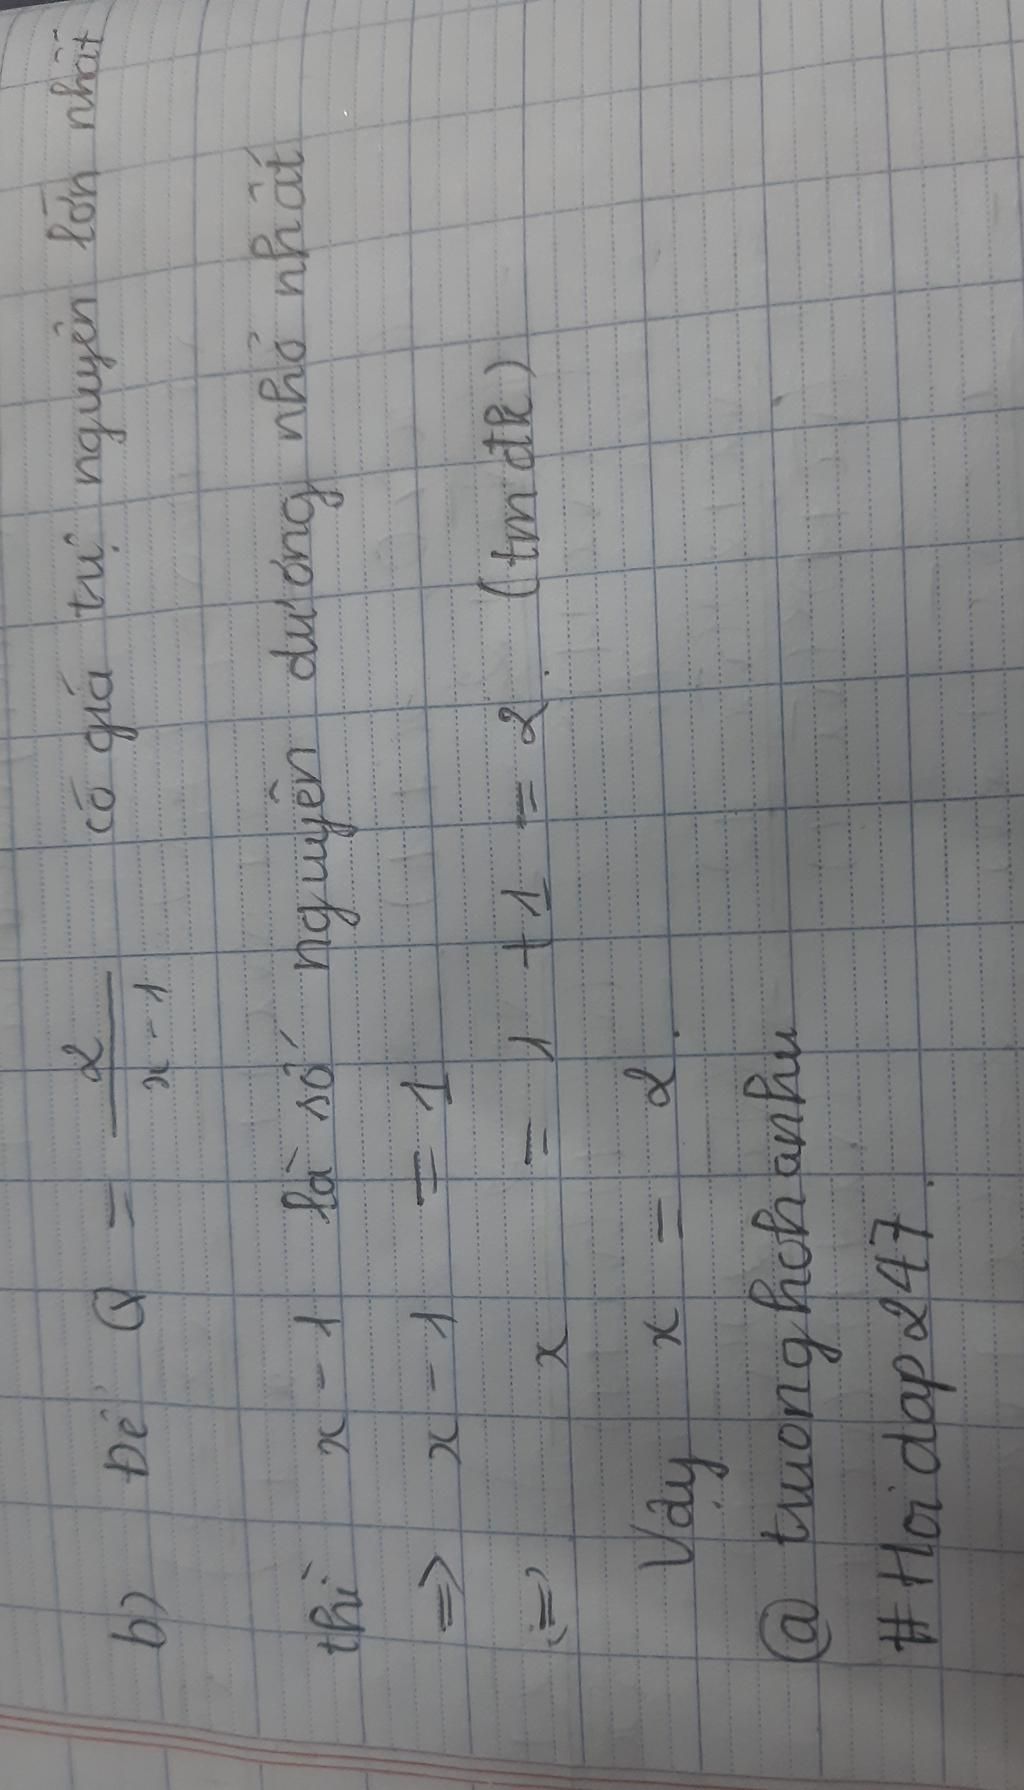 b) Để Q = 2/(x - 1) có giá trị nguyên lớn nhất
thì x - 1 là số nguyên dương nhỏ nhất
=> x - 1 = 1
<=> x = 1 + 1 = 2. (tmđk)
Vậy x = 2.
@ truonghohanhu
# Hoidap247.